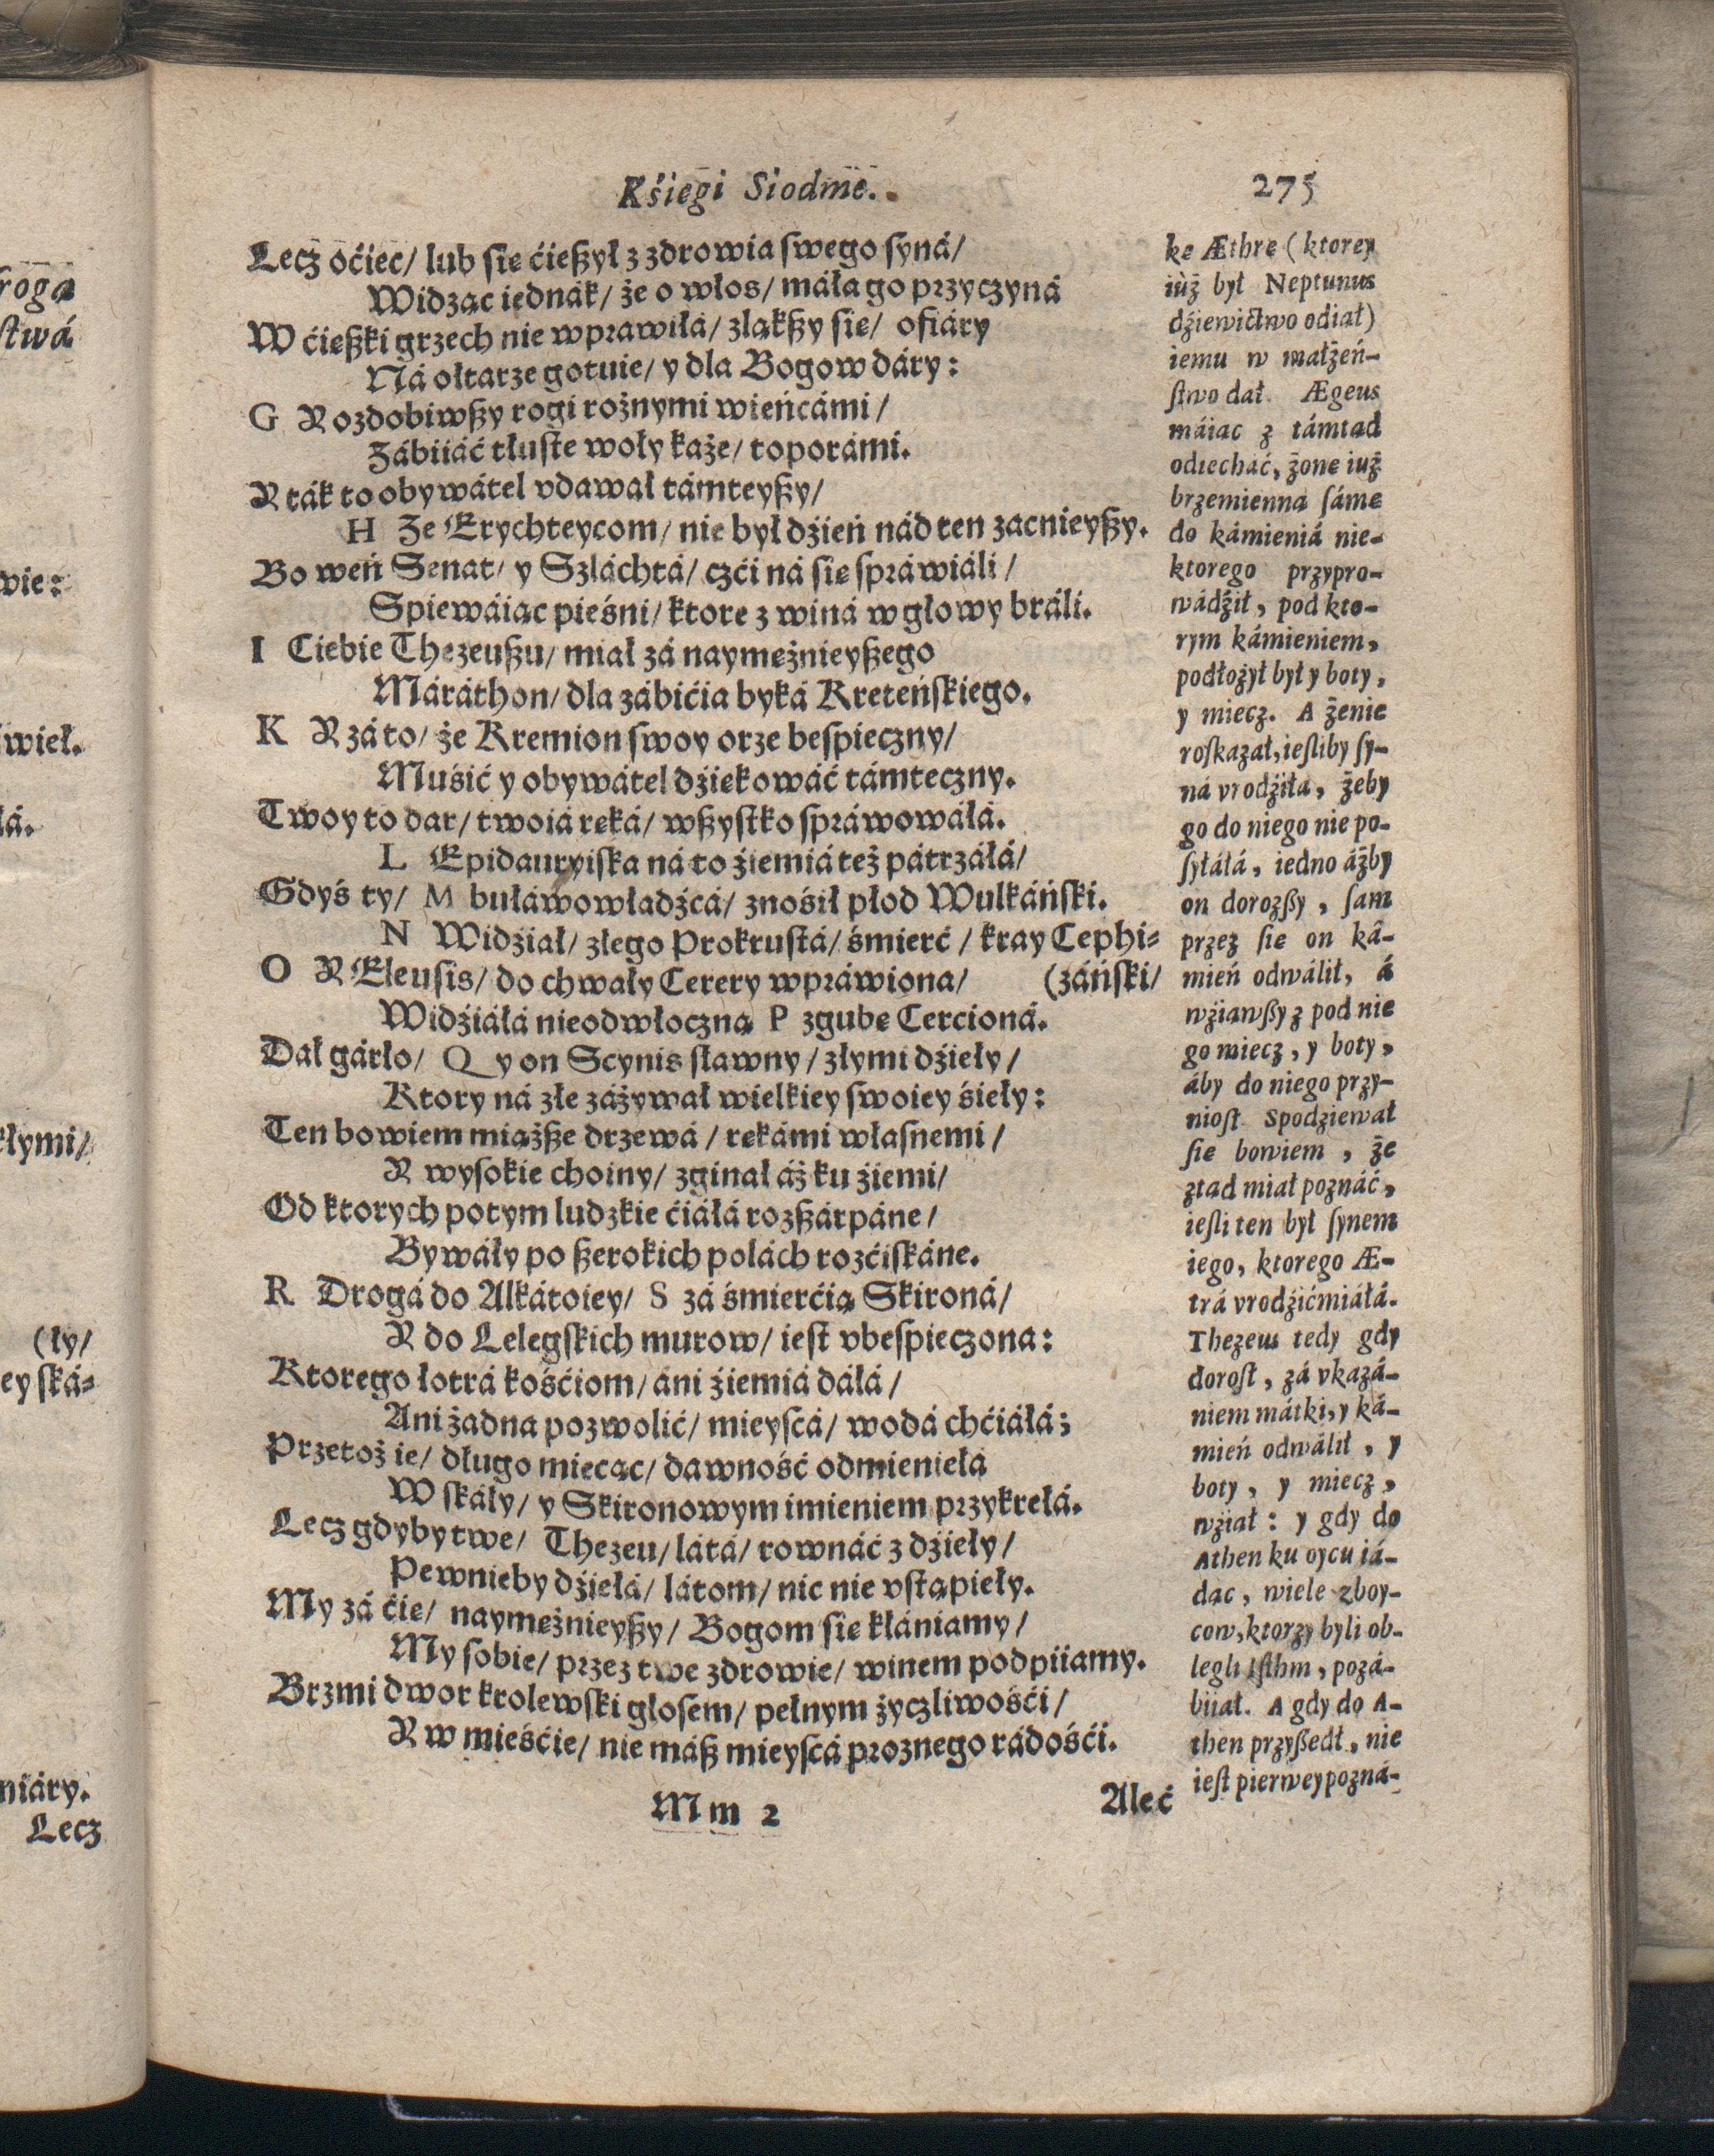 Kśięgi Siodme.
275
Lecz oćiec/ lub się ćießył z zdrowia swego syná/
Widząc iednák/ że o włos/ máła go przyczyná
W ćießki grzech nie wpráwiłá/ zląkßy się/ ofiáry
Ná ołtarze gotuie/ y dla Bogow dáry:
G Rozdobiwßy rogi rożnymi wieńcámi/
Zábiiáć tłuste woły każe/ toporámi.
A ták to obywátel vdawał támteyßy/
H Ze Erychteycom/ nie był dźień nád ten zacnieyßy.
Bo weń Senat/ y Szláchtá/ czći ná się spráwiáli/
Spiewáiąc pieśni/ ktore z winá w głowy bráli.
I Ciebie Thezeußu/ miał zá naymężnieyßego
Máráthon/ dla zábićia byká Kreteńskiego.
K A zá to/ że Kremion swoy orze bespieczny/
Muśić y obywátel dźiękowáć támteczny.
Twoy to dar/ twoiá ręká/ wßystko spráwowáłá.
L Epidauryiska ná to źiemiá też pátrzáłá/
Gdyś ty/ M buławowładźcá/ znośił płod Wulkáński.
N Widźiał/ złego Prokrustá/ śmierć/ kray Cephi-
O A Eleusis/ do chwały Cerery wpráwiona/ (záński/
Widźiáłá nieodwłoczną P zgubę Cercioná.
Dał gárło/ Q y on Scynis sławny/ złymi dźieły/
Ktory ná złe záżywał wielkiey swoiey śieły:
Ten bowiem miąższe drzewá/ rękámi własnemi/
A wysokie choiny/ zginał áż ku źiemi/
Od ktorych potym ludzkie ćiáłá rozßárpáne/
Bywáły po ßerokich polách rozćiskáne.
R Drogá do Alkátoiey/ S zá śmierćią Skironá/
A do Lelegskich murow/ iest vbespieczona:
Ktorego łotrá kośćiom/ áni źiemiá dáłá/
Ani żadna pozwolić/ mieyscá/ wodá chćiáłá;
Przetoż ie/ długo miecąc/ dawność odmieniełá
W skáły/ y Skironowym imieniem przykrełá.
Lecz gdyby twe/ Thezeu/ látá/ rownáć z dźieły/
Pewnieby dźiełá/ látom/ nic nie vstąpieły.
My zá ćię/ naymężnieyßy/ Bogom się kłániamy/
My sobie/ przez twe zdrowie/ winem podpiiamy.
Brzmi dwor krolewski głosem/ pełnym życzliwośći/
A w mieśćie/ nie máß mieyscá proznego rádośći.
Mm 2
Aleć
kę Æthrę (ktorey
iùż był Neptunus
dźiewictwo odiął)
iemu w małżeń-
stwo dał. Ægeus
máiąc z támtąd
odiecháć, żonę iuż
brzemienną sámę
do kámieniá nie-
ktorego przypro-
wádźił, pod kto-
rym kámieniem,
podłożył był y boty,
y miecz. A żenie
roskazał, iesliby sy-
ná vrodźiłá, żeby
go do niego nie po-
syłáłá, iedno áżby
on dorozßy, sam
przez się on ká-
mień odwálił, á
wźiąwßy z pod nie
go miecz, y boty,
áby do niego przy-
niosł Spodziewał
się bowiem, że
ztąd miał poznáć,
iesli ten był synem
iego, ktorego Æ-
trá vrodźić miáłá.
Thezeus tedy gdy
dorost, zá vkazá-
niem mátki, y ká-
mień odwálił, y
boty, y miecz,
wźiął: y gdy do
Athen ku oycu iá-
dąc, wiele zboy-
cow, ktorzy byli ob-
legli Isthm, pozá-
biiał. A gdy do A-
then przyßedł, nie
iest pierwey pozná-
rogą
stwá
wie:
wieł.
łá.
kłymi/
(ły/
ey ská-
niáry.
Lecz